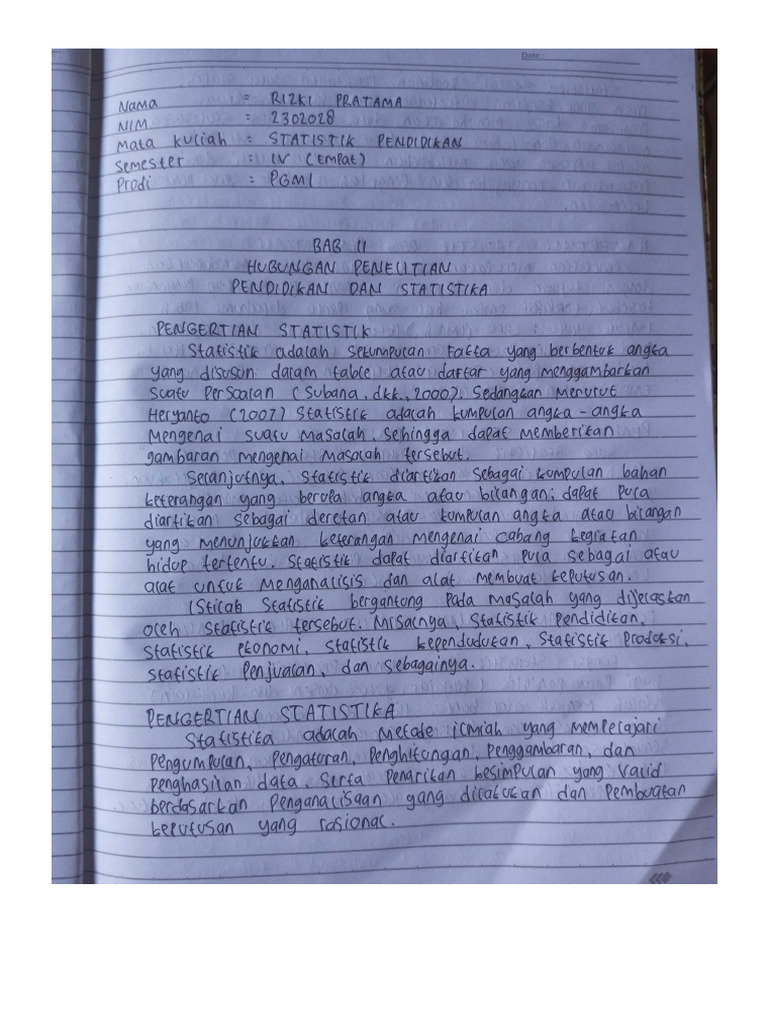 Date :
Nama : RIZKI PRATAMA
NIM : 2302028
Mata kuliah : STATISTIK PENDIDIKAN
Semester : IV (Empat)
Prodi : PGMI
BAB II
HUBUNGAN PENELITIAN
PENDIDIKAN DAN STATISTIKA
PENGERTIAN STATISTIK
Statistik adalah sekumpulan fakta yang berbentuk angka
yang disusun dalam table atau daftar yang menggambarkan
suatu persoalan (Subana, dkk., 2000). Sedangkan Menurut
Heryanto (2007) Statistik adalah kumpulan angka-angka
Mengenai suatu masalah, sehingga dapat memberikan
gambaran mengenai masalah tersebut.
Selanjutnya, Statistik diartikan sebagai kumpulan bahan
keterangan yang berupa angka atau bilangan; dapat pula
diartikan sebagai deretan atau kumpulan angka atau bilangan
yang menunjukkan keterangan mengenai cabang kegiatan
hidup tertentu. Statistik dapat diartikan pula sebagai atau
alat untuk menganalisis dan alat membuat keputusan.
Istilah Statistik bergantung pada masalah yang dijelaskan
oleh Statistik tersebut. Misalnya, Statistik Pendidikan,
Statistik ekonomi, Statistik kependudukan, Statistik Produksi,
Statistik Penjualan, dan sebagainya.
PENGERTIAN STATISTIKA
Statistika adalah Metode ilmiah yang mempelajari
Pengumpulan, Pengaturan, Penghitungan, Penggambaran, dan
Penghasilan data, serta Penarikan kesimpulan yang Valid
berdasarkan Penganalisaan yang dilakukan dan Pembuatan
keputusan yang rasional.